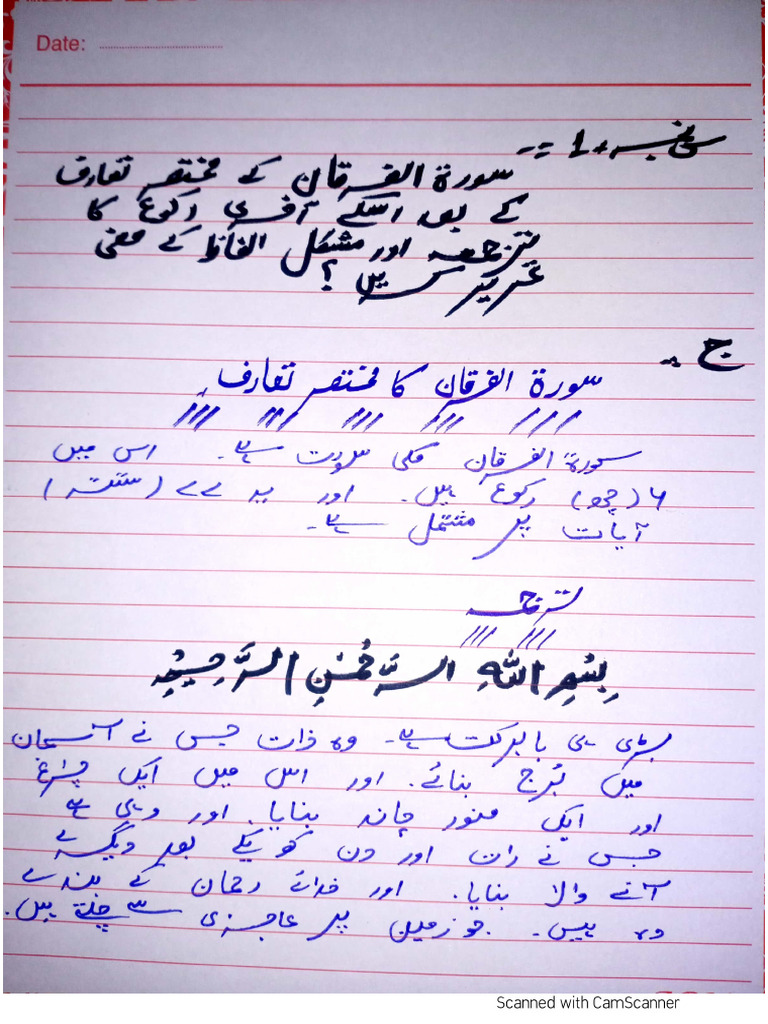 Date:
س نمبر 1 :-
سورۃ الفرقان کے مختصر تعارف
کے بعد اسکے آخری رکوع کا
ترجمہ اور مشکل الفاظ کے معنی
تحریر کریں ؟
ج :-
سورۃ الفرقان کا مختصر تعارف
سورۃ الفرقان مکی سورت ہے۔ اس میں
۶ (چھ) رکوع ہیں۔ اور یہ ۷۷ (ستتر)
آیات پر مشتمل ہے۔
ترجمہ
بِسْمِ اللّٰہِ الرَّحْمٰنِ الرَّحِیْمِ
بڑی ہی بابرکت ہے۔ وہ ذات جس نے آسمان
میں بُرج بنائے۔ اور اس میں ایک چراغ
اور ایک منور چاند بنایا۔ اور وہی ہے
جس نے رات اور دن کو یکے بعد دیگرے
آنے والا بنایا۔ اور خدائے رحمان کے بندے
وہ ہیں۔ جو زمین پر عاجزی سے چلتے ہیں۔
Scanned with CamScanner